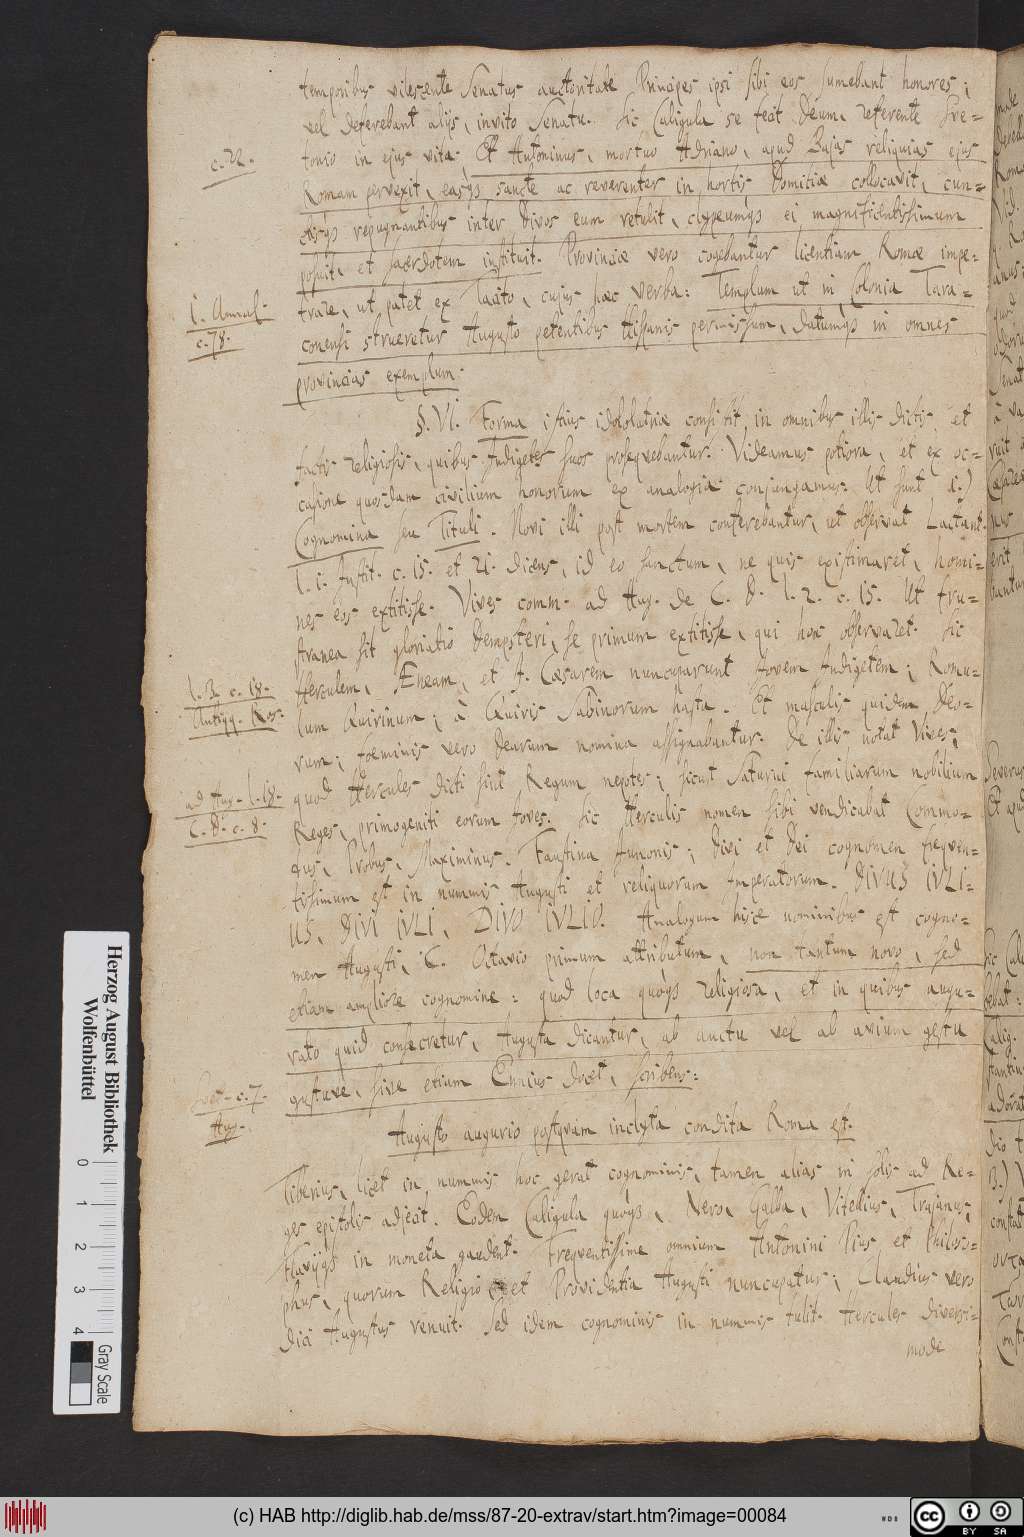 temporibus vilescente Senatus auctoritate Principes ipsi sibi eos sumebant honores;
vel deferebant aliis, invito Senatu. Sic Caligula se fecit Deum, referente Sve=
tonio in ejus vita. Et Antoninus, mortuo Adriano, apud Bajas reliquias ejus
c. 22.
Romam pervexit, easqs sancte ac reverenter in hortis Domitiæ collocavit, cun=
ctisqs repugnantibus inter Divos eum retulit, clypeumqs ei magnificentissimum
posuit, et sacerdotem instituit. Provinciæ vero cogebantur licentiam Romæ impe=
trare, ut patet ex Tacito, cujus hæc verba: Templum ut in Colonia Tara=
1. Annal.
c. 78.
conensi strueretur Augusto petentibus Hispanis permissum, datumqs in omnes
provincias exemplum.
§. VI. Forma istius idololatriæ consistit in omnibus illis dictis et
factis religiosis, quibus Indigetes suos prosequebantur. Videamus potiora, et ex oc=
casione quosdam civilium honorum ex analogia conjungamus. Ut sunt 1.)
Cognomina seu Tituli. Novi illi post mortem conferebantur, ut observat Lactant.
l. 1. Instit. c. 15. et 21. dicens, id eo factum, ne quis existimaret, homi=
nes eos extitisse. Vives comm. ad Aug. de C. D. l. 2. c. 15. Ut fru=
stranea sit gloriatio Dempsteri, se primum extitisse, qui hoc observaret. Sic
Herculem, Æneam, et J. Cæsarem nuncuparunt Jovem Indigetem; Romu=
l. 3. c. 18.
Antiqq. Rom.
lum Quirinum; à Quiris Sabinorum hasta. Et masculis quidem Deo=
rum; foeminis vero Dearum nomina assignabantur. De illis notat Vives,
quod Hercules dicti sint Regum nepotes; sicut Saturni familiarum nobilium
ad Aug. l. 18.
C. D. c. 8.
Reges, primogeniti eorum Joves. Sic Herculis nomen sibi vendicabat Commo=
dus, Probus, Maximinus. Faustina Junonis; Divi et Dei cognomen frequen=
tissimum est in nummis Augusti et reliquorum Imperatorum. DIVUS IVLI=
US, DIVI IVLI, DIVO IVLIO. Analogum hisce nominibus est cogno=
men Augusti, C. Octavio primum attributum, non tantum novo, sed
etiam ampliore cognomine: quod loca quoqs religiosa, et in quibus augu=
rato quid consecretur, Augusta dicantur, ab auctu vel ab avium gestu
gustuve, sive etiam Ennius docet, scribens:
Svet. c. 7.
Aug.
Augusto augurio postquam inclyta condita Roma est.
Tiberius, licet in nummis hoc gerat cognominis, tamen alias in solis ad Re=
ges epistolis adjecit. Eodem Caligula quoqs, Nero, Galba, Vitellius, Trajanus,
Flaviiqs in moneta gaudent. Frequentissime omnium Antonini Pius et Philoso=
phus, quorum Religio et Providentia Augusti nuncupatur; Claudius vero
dici Augustus renuit. Sed idem cognominis in nummis tulit. Hercules diversi=
mode
Herzog August Bibliothek
Wolfenbüttel
0 1 2 3 4
Gray Scale
(c) HAB http://diglib.hab.de/mss/87-20-extrav/start.htm?image=00084
cc BY SA